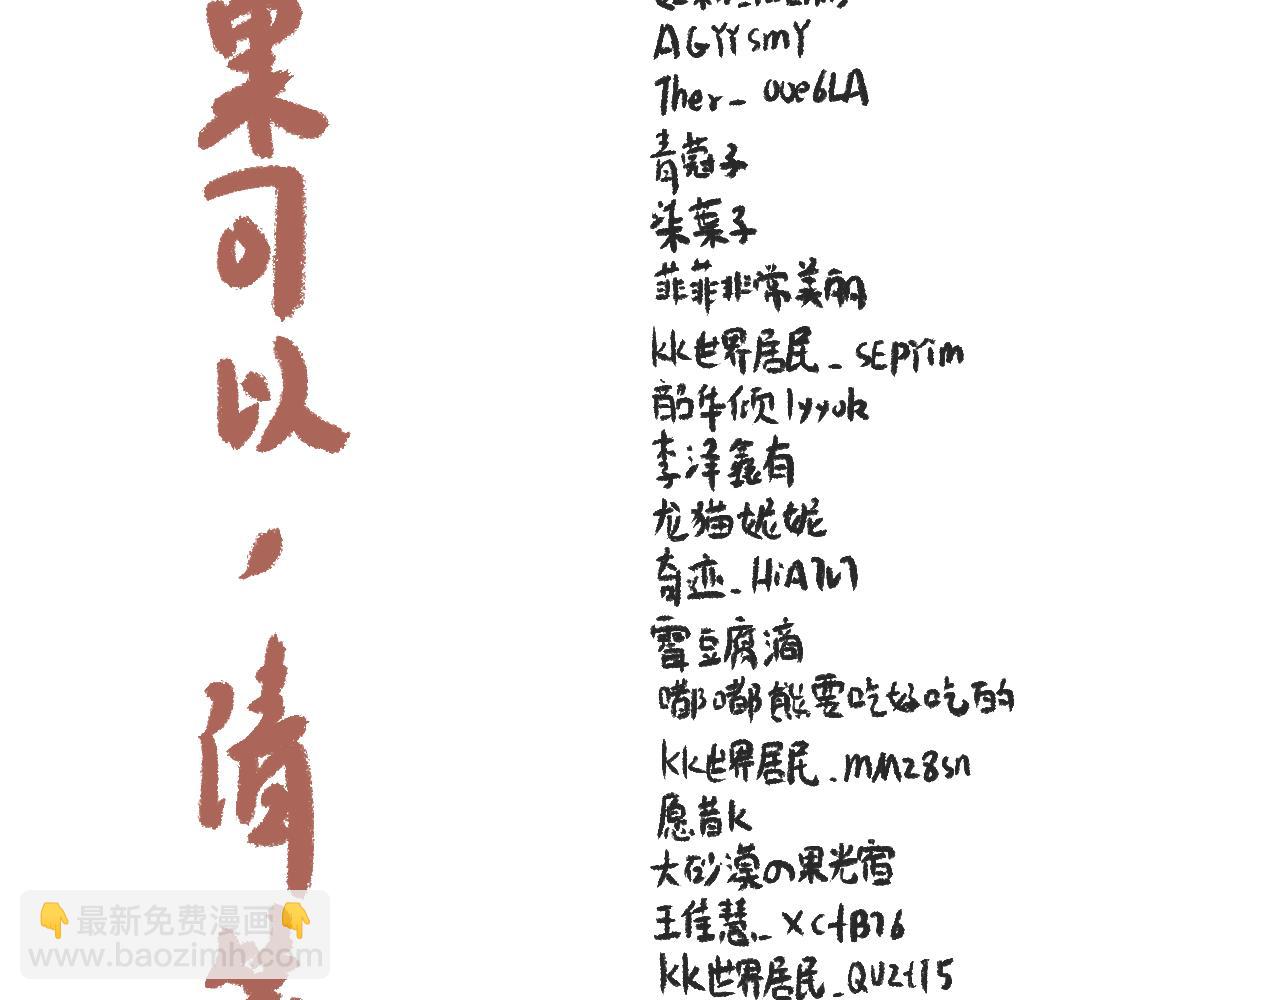 果可以，情
AGYYsmY
Ther_ooe6LA
青蔻子
柒葉子
菲菲非常美丽
kk世界居民_SEPYim
韶华倾lyyok
李泽鑫有
龙猫妮妮
奇迹_HiA7v7
雪豆腐滴
嘟嘟熊要吃好吃的
kk世界居民_mMz8sn
愿昔k
大砂漠の果光宿
王佳慧_XctB76
kk世界居民_QUzt15
👇最新免费漫画👇
www.baozimh.com